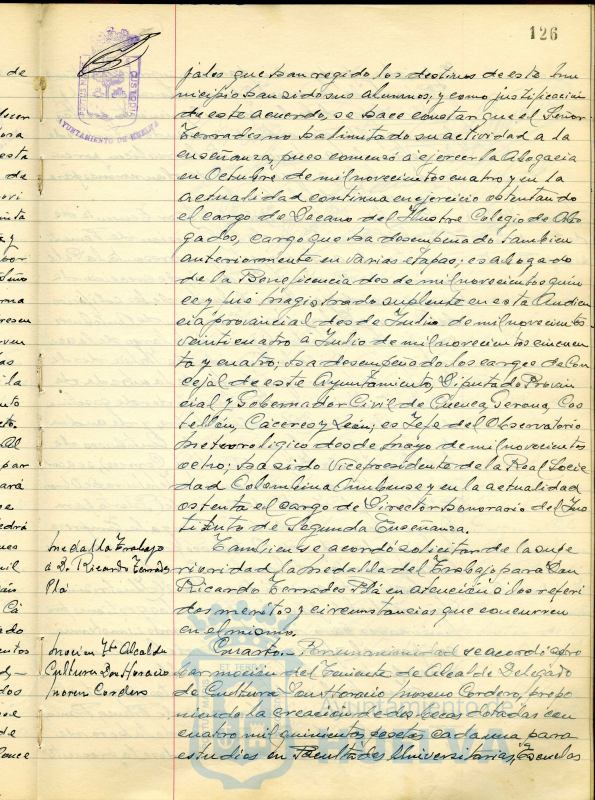 126
AYUNTAMIENTO DE HUELVA
pales que han regido los destinos de este Mu
nicipio han sido sus alumnos; y como justificación
de este acuerdo, se hace constar que el Señor
Terrades no ha limitado su actividad a la
enseñanza, pues comenzó a ejercer la Abogacía
en Octubre de mil novecientos cuatro y en la
actualidad continua en ejercicio ostentando
el cargo de Decano del Ilustre Colegio de Abo
gados, cargo que ha desempeñado tambien
anteriormente en varias etapas; es abogado
de la Beneficencia desde mil novecientos quin
ce y fué Magistrado suplente en esta Audien
cia provincial desde Julio de mil novecientos
veinticuatro a Julio de mil novecientos cincuen
ta y cuatro; ha desempeñado los cargos de Con
cejal de este Ayuntamiento, Diputado Provin
cial y Gobernador Civil de Cuenca, Gerona, Cas
tellón, Cáceres y León; es Jefe del Observatorio
Meteorológico desde Mayo de mil novecientos
ocho; ha sido Vicepresidente de la Real Socie
dad Colombina Onubense y en la actualidad
ostenta el cargo de Director honorario del Ins
tituto de Segunda Enseñanza.
Medalla Trabajo
a D. Ricardo Terrades
Plá
Tambien se acordó solicitar de la supe
rioridad la Medalla del Trabajo para Don
Ricardo Terrades Plá en atención a los referi
dos meritos y circunstancias que concurren
en el mismo.
Moción Tte Alcalde
Cultura Don Horacio
Moreno Cordero
Cuarto.- Por unanimidad se acordó
moción del Teniente de Alcalde Delegado
de Cultura Don Horacio Moreno Cordero, propo
niendo la creación de dos becas dotadas con
cuatro mil quinientas pesetas cada una para
estudios en Facultades Universitarias, Escuelas
Ayuntamiento de
HUELVA